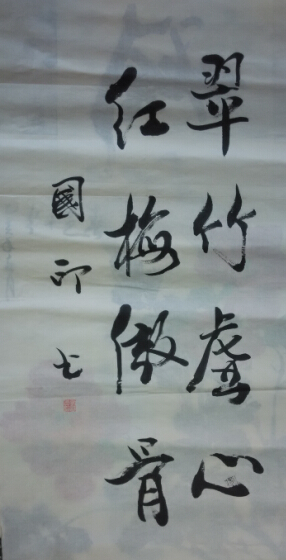 翠竹虚心
红梅傲骨
國印书